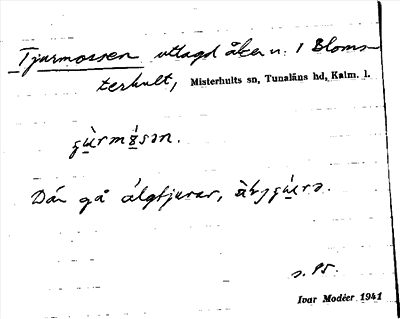 Tjurmossen uttagd åker u. 1 Bloms-
terhult, Misterhults sn, Tunaläns hd, Kalm. l.
Där gå älgtjurar,
s. 95.
Ivar Modéer 1941